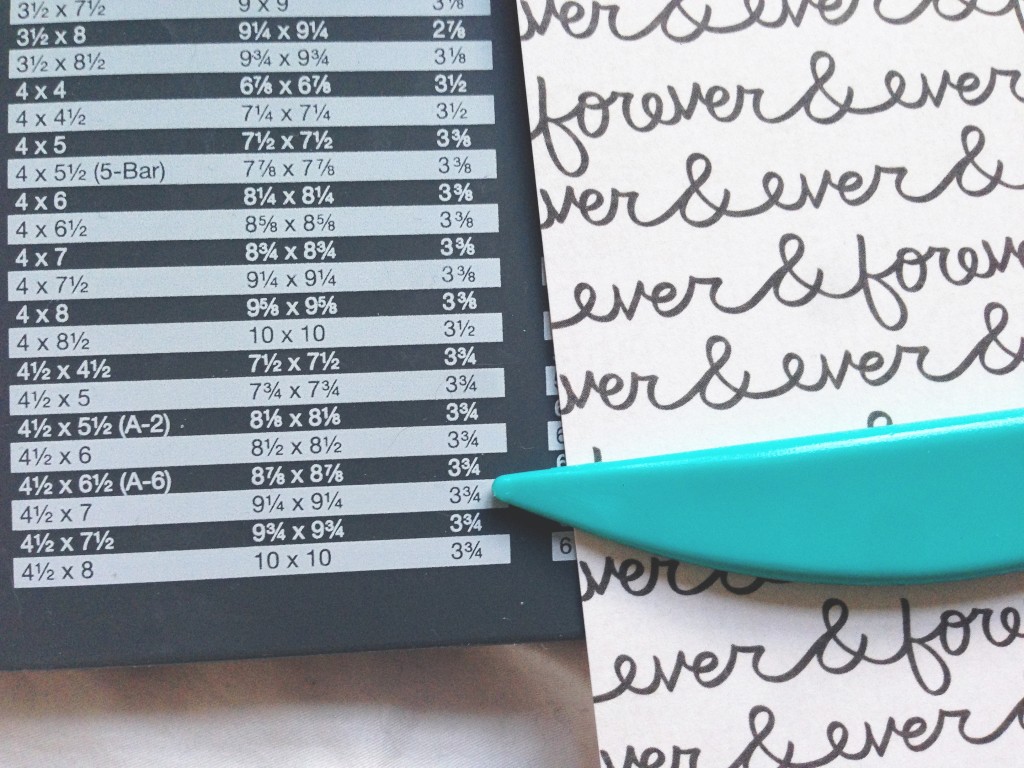 3½ x 7½ 9 x 9 3⅛
3½ x 8 9¼ x 9¼ 2⅞
3½ x 8½ 9¾ x 9¾ 3⅛
4 x 4 6⅞ x 6⅞ 3½
4 x 4½ 7¼ x 7¼ 3½
4 x 5 7½ x 7½ 3⅜
4 x 5½ (5-Bar) 7⅞ x 7⅞ 3⅜
4 x 6 8¼ x 8¼ 3⅜
4 x 6½ 8⅝ x 8⅝ 3⅜
4 x 7 8¾ x 8¾ 3⅜
4 x 7½ 9¼ x 9¼ 3⅜
4 x 8 9⅝ x 9⅝ 3⅜
4 x 8½ 10 x 10 3½
4½ x 4½ 7½ x 7½ 3¾
4½ x 5 7¾ x 7¾ 3¾
4½ x 5½ (A-2) 8⅛ x 8⅛ 3¾
4½ x 6 8½ x 8½ 3¾
4½ x 6½ (A-6) 8⅞ x 8⅞ 3¾
4½ x 7 9¼ x 9¼ 3¾
4½ x 7½ 9¾ x 9¾ 3¾
4½ x 8 10 x 10 3¾
6
6
6
ever & ever
forever & ever
ever & ever &
ever & forever
ever & ever &
ever
ever & fore
ever & ever